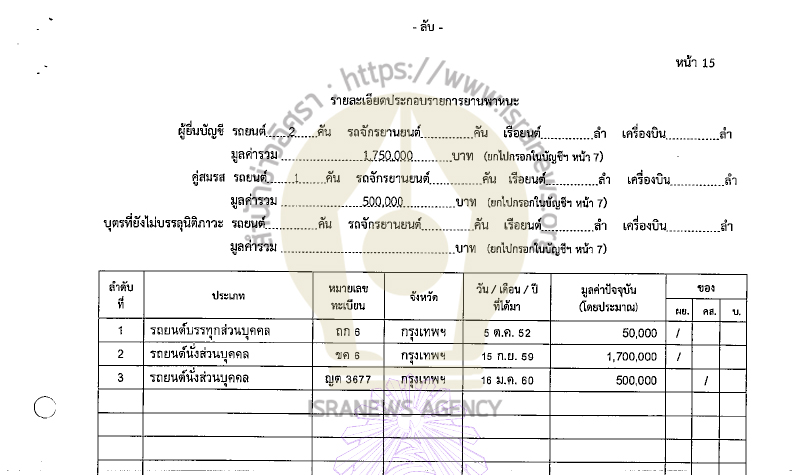 - ลับ -
หน้า 15
รายละเอียดประกอบรายการยานพาหนะ
ผู้ยื่นบัญชี รถยนต์ 2 คัน รถจักรยานยนต์ คัน เรือยนต์ ลำ เครื่องบิน ลำ
มูลค่ารวม 1,750,000 บาท (ยกไปกรอกในบัญชีฯ หน้า 7)
คู่สมรส รถยนต์ 1 คัน รถจักรยานยนต์ คัน เรือยนต์ ลำ เครื่องบิน ลำ
มูลค่ารวม 500,000 บาท (ยกไปกรอกในบัญชีฯ หน้า 7)
บุตรที่ยังไม่บรรลุนิติภาวะ รถยนต์ คัน รถจักรยานยนต์ คัน เรือยนต์ ลำ เครื่องบิน ลำ
มูลค่ารวม บาท (ยกไปกรอกในบัญชีฯ หน้า 7)
ลำดับที่ ประเภท หมายเลขทะเบียน จังหวัด วัน / เดือน / ปี ที่ได้มา มูลค่าปัจจุบัน (โดยประมาณ) ของ
ผย. คส. บ.
1 รถยนต์บรรทุกส่วนบุคคล ถก 6 กรุงเทพฯ 5 ต.ค. 52 50,000 /
2 รถยนต์นั่งส่วนบุคคล ขค 6 กรุงเทพฯ 15 ก.ย. 59 1,700,000 /
3 รถยนต์นั่งส่วนบุคคล ญต 3677 กรุงเทพฯ 16 ม.ค. 60 500,000 /
สำนักข่าวอิศรา : https://www.isranews.org
ISRANEWS AGENCY